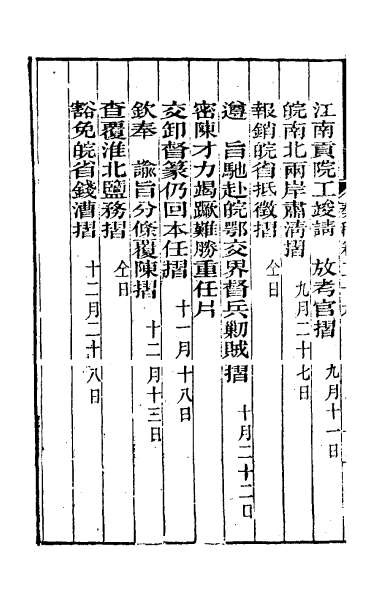 江南貢院工竣請　放考官摺　九月十一日
皖南北兩岸肅清摺　九月二十七日
報銷皖省抵徵摺　仝日
遵　旨馳赴皖鄂交界督兵剿賊摺　十月二十二日
密陳才力竭蹶難勝重任片
交卸督篆仍回本任摺　十一月十八日
欽奉　諭旨分條覆陳摺　十二月十三日
查覆淮北鹽務摺　仝日
豁免皖省錢漕摺　十二月二十八日